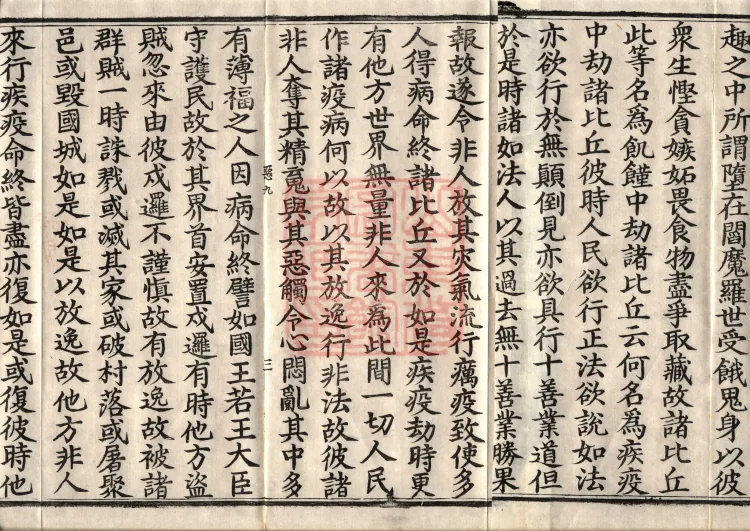 趣之中所謂墮在閻魔羅世受餓鬼身以彼
衆生慳貪嫉妬畏食物盡爭取藏故諸比丘
此等名爲飢饉中劫諸比丘云何名爲疾疫
中劫諸比丘彼時人民欲行正法欲說如法
亦欲行於無顛倒見亦欲具行十善業道但
於是時諸如法人以其過去無十善業勝果
報故遂令非人放其灾氣流行癘疫致使多
人得病命終諸比丘又於如是疾疫劫時更
有他方世界無量非人來爲此間一切人民
作諸疫病何以故以其放逸行非法故彼諸
非人奪其精䰟與其惡觸令心悶亂其中多
惡九
三
有薄福之人因病命終譬如國王若王大臣
守護民故於其界首安置戍邏有時他方盜
賊忽來由彼戍邏不謹慎故有放逸故被諸
群賊一時誅戮或滅其家或破村落或屠聚
邑或毀國城如是如是以放逸故他方非人
來行疾疫命終皆盡亦復如是或復彼時他